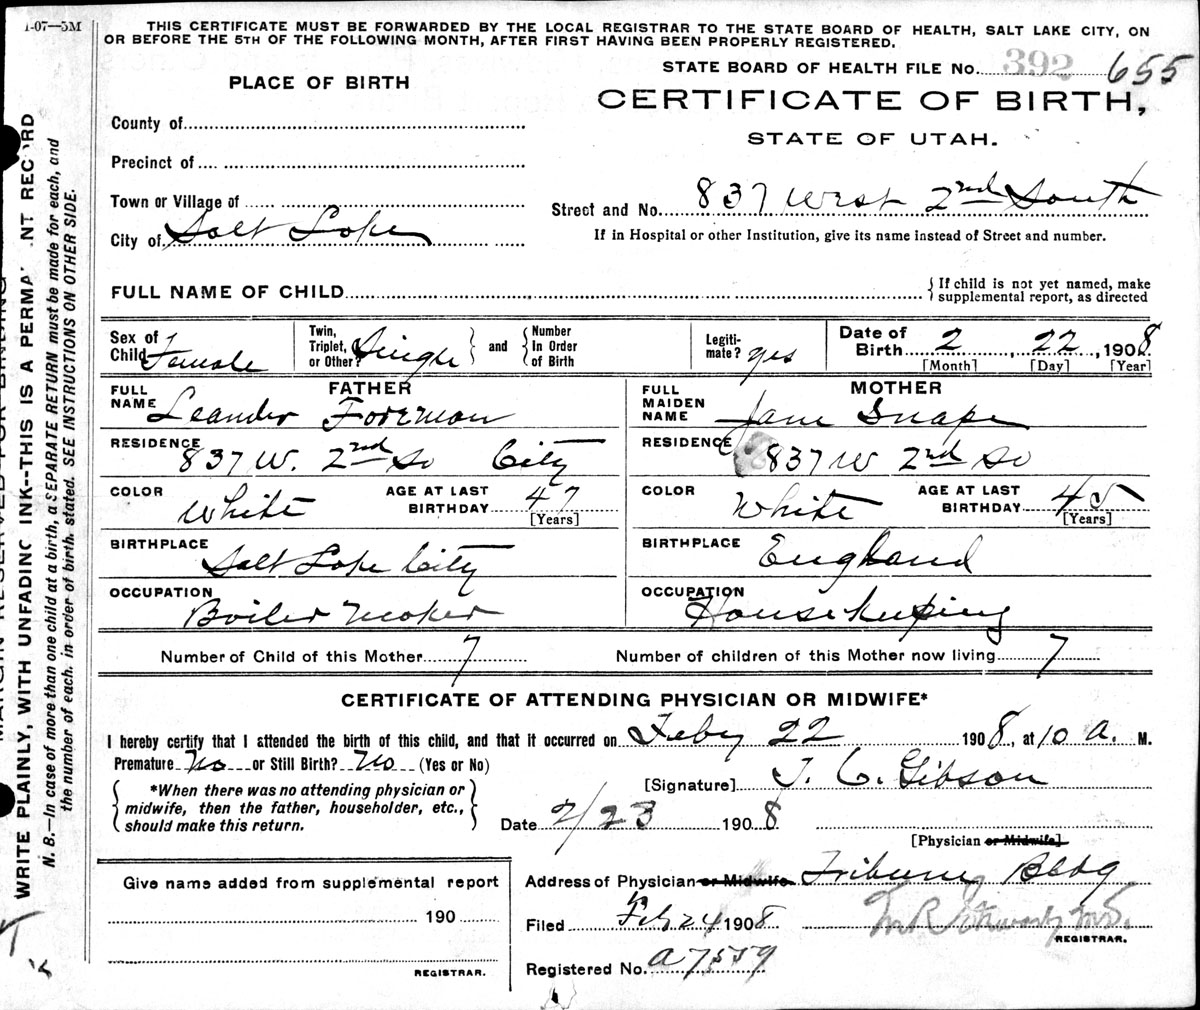 1-07—5M
THIS CERTIFICATE MUST BE FORWARDED BY THE LOCAL REGISTRAR TO THE STATE BOARD OF HEALTH, SALT LAKE CITY, ON
OR BEFORE THE 5TH OF THE FOLLOWING MONTH, AFTER FIRST HAVING BEEN PROPERLY REGISTERED.
STATE BOARD OF HEALTH FILE No. 392 655
PLACE OF BIRTH
CERTIFICATE OF BIRTH,
STATE OF UTAH.
County of
Precinct of
Town or Village of
City of Salt Lake
Street and No. 837 West 2nd South
If in Hospital or other Institution, give its name instead of Street and number.
FULL NAME OF CHILD
{ If child is not yet named, make
supplemental report, as directed
Sex of Child Female
Twin, Triplet, or Other? Single } and { Number In Order of Birth
Legiti-mate? yes
Date of Birth 2, 22, 1908
[Month] [Day] [Year]
FATHER
FULL NAME Leander Foreman
MOTHER
FULL MAIDEN NAME Jane Snape
RESIDENCE 837 W. 2nd So City
RESIDENCE 837 W 2nd So
COLOR White AGE AT LAST BIRTHDAY 47 [Years]
COLOR White AGE AT LAST BIRTHDAY 45 [Years]
BIRTHPLACE Salt Lake City
BIRTHPLACE England
OCCUPATION Boiler Maker
OCCUPATION Housekeeping
Number of Child of this Mother 7 Number of children of this Mother now living 7
CERTIFICATE OF ATTENDING PHYSICIAN OR MIDWIFE*
I hereby certify that I attended the birth of this child, and that it occurred on Feby 22 1908, at 10 a. M.
Premature No or Still Birth? No (Yes or No)
{ *When there was no attending physician or
midwife, then the father, householder, etc.,
should make this return. }
[Signature] J. C. Gibson
Date 2/23 1908
[Physician or Midwife]
Give name added from supplemental report
190
REGISTRAR.
Address of Physician or Midwife Tribune Bldg
Filed Feb 24 1908
REGISTRAR.
Registered No. a 7559
MARGIN RESERVED FOR BINDING
WRITE PLAINLY, WITH UNFADING INK--THIS IS A PERMANENT RECORD
N. B.—In case of more than one child at a birth, a SEPARATE RETURN must be made for each, and
the number of each, in order of birth, stated. SEE INSTRUCTIONS ON OTHER SIDE.